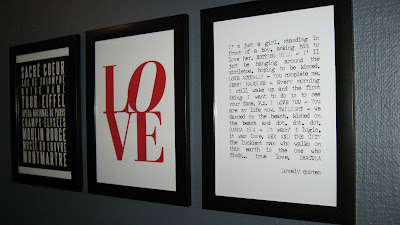 SACRÉ COEUR
ARC DE TRIOMPHE
NOTRE DAME
TOUR EIFFEL
OPERA NATIONAL DE PARIS
MOULIN ROUGE
MUSÉE DU LOUVRE
MONTMARTRE
LO
VE
I'm just a girl, standing in
front of a boy, asking him to
love her, NOTTING HILL - I'll
just be hanging around the
mistletoe, hoping to be kissed,
LOVE ACTUALLY - You complete me,
JERRY MAGUIRE - Every morning
I still wake up and the first
thing I want to do is to see
your face, P.S. I LOVE YOU - You
are my life now, TWILIGHT - We
danced on the beach, kissed on
the beach and dot, dot, dot,
MAMMA MIA - It wasn't logic,
it was love, SEX AND THE CITY
The luckiest man who walks on
this earth is the one who
finds... true love, DRACULA
Lovely quotes